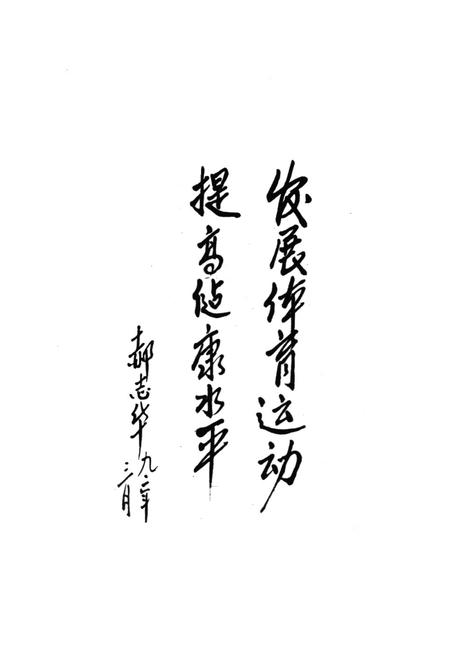 发展体育运动
提高健康水平
郝志华
九二年
三月